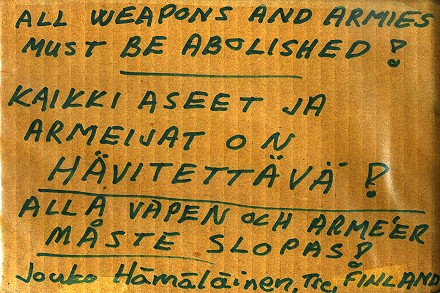 ALL WEAPONS AND ARMIES
MUST BE ABOLISHED!
KAIKKI ASEET JA
ARMEIJAT ON
HÄVITETTÄVÄ!
ALLA VAPEN OCH ARMÉER
MÅSTE SLOPAS!
Jouko Hämäläinen, Tre, FINLAND